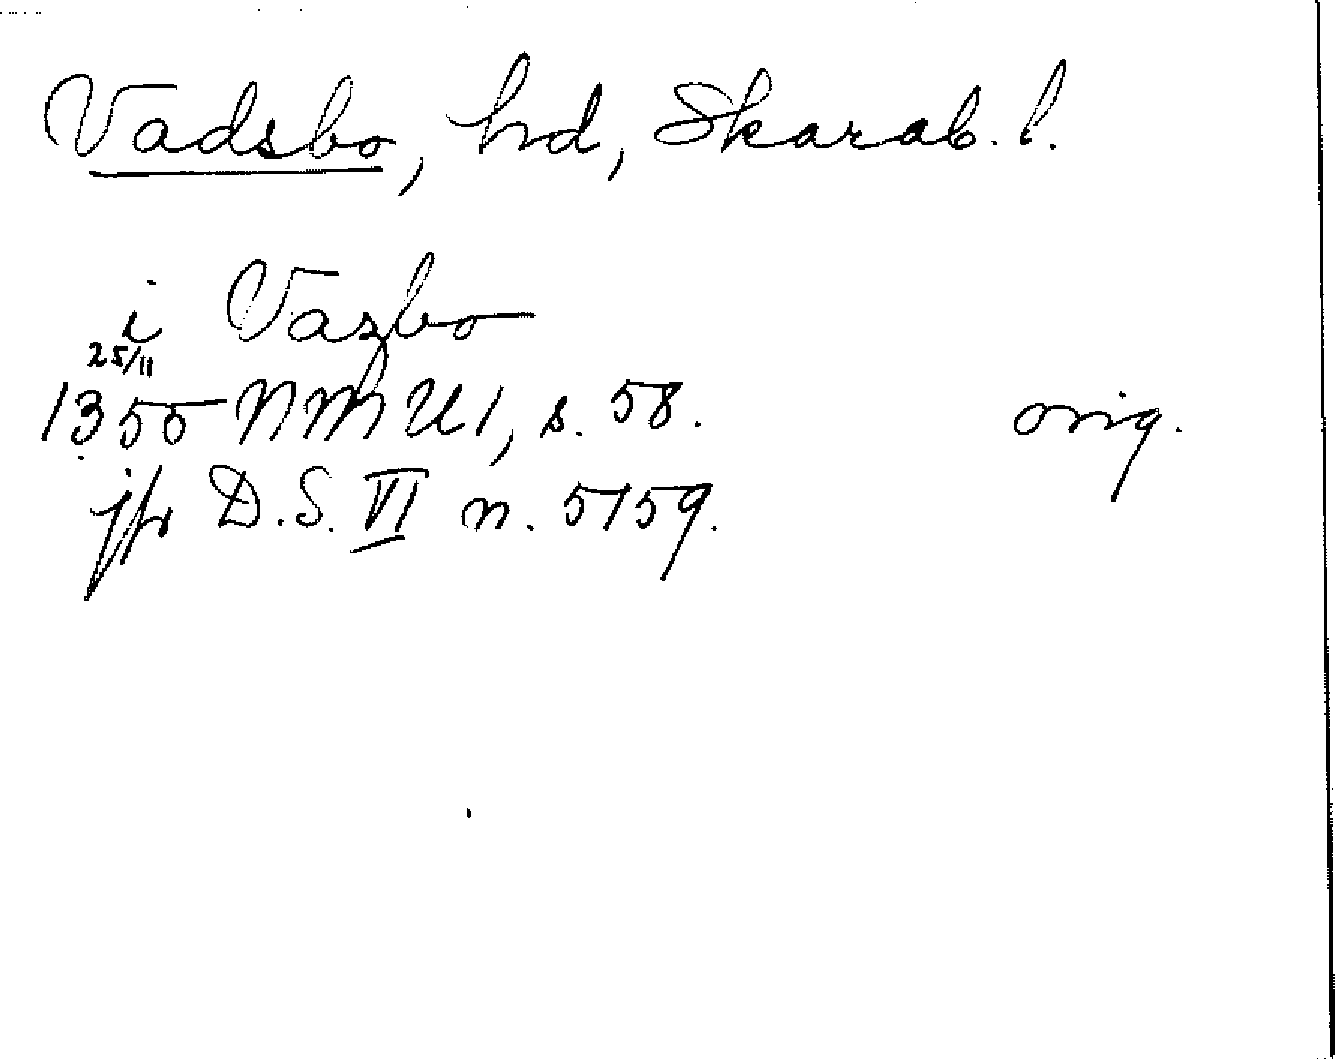 Vadsbo, hd, Skarab. l.
i Vazbo
25/11
1355 NMU1, s. 58. orig.
jfr D.S. VI n. 5159.